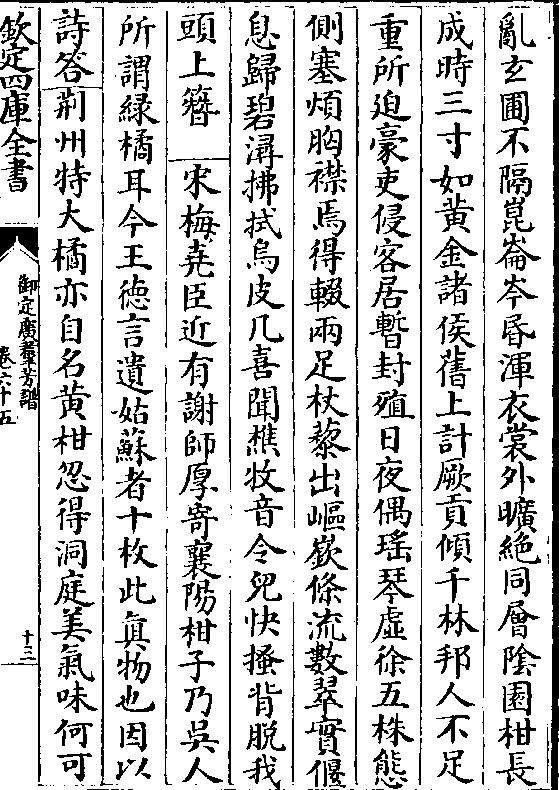 亂玄圃不隔崑崙岑昏渾衣裳外曠絶同層陰園柑長
成時三寸如黃金諸侯舊上計厥貢傾千林邦人不足
重所迫豪吏侵客居暫封殖日夜偶瑶琴虛徐五株態
側塞煩胸襟焉得輟兩足杖藜出嶇嶔條流數翠實偃
息歸碧潯拂拭烏皮几喜聞樵牧音令兒快搔背脱我
頭上簪 宋梅堯臣近有謝師厚寄襄陽柑子乃吳人
所謂緑橘耳今王徳言遺姑蘇者十枚此眞物也因以
詩答 荆州特大橘亦自名黄柑忽得洞庭美氣味何可
欽定四庫全書
御定廣羣芳譜
卷六十五
十三